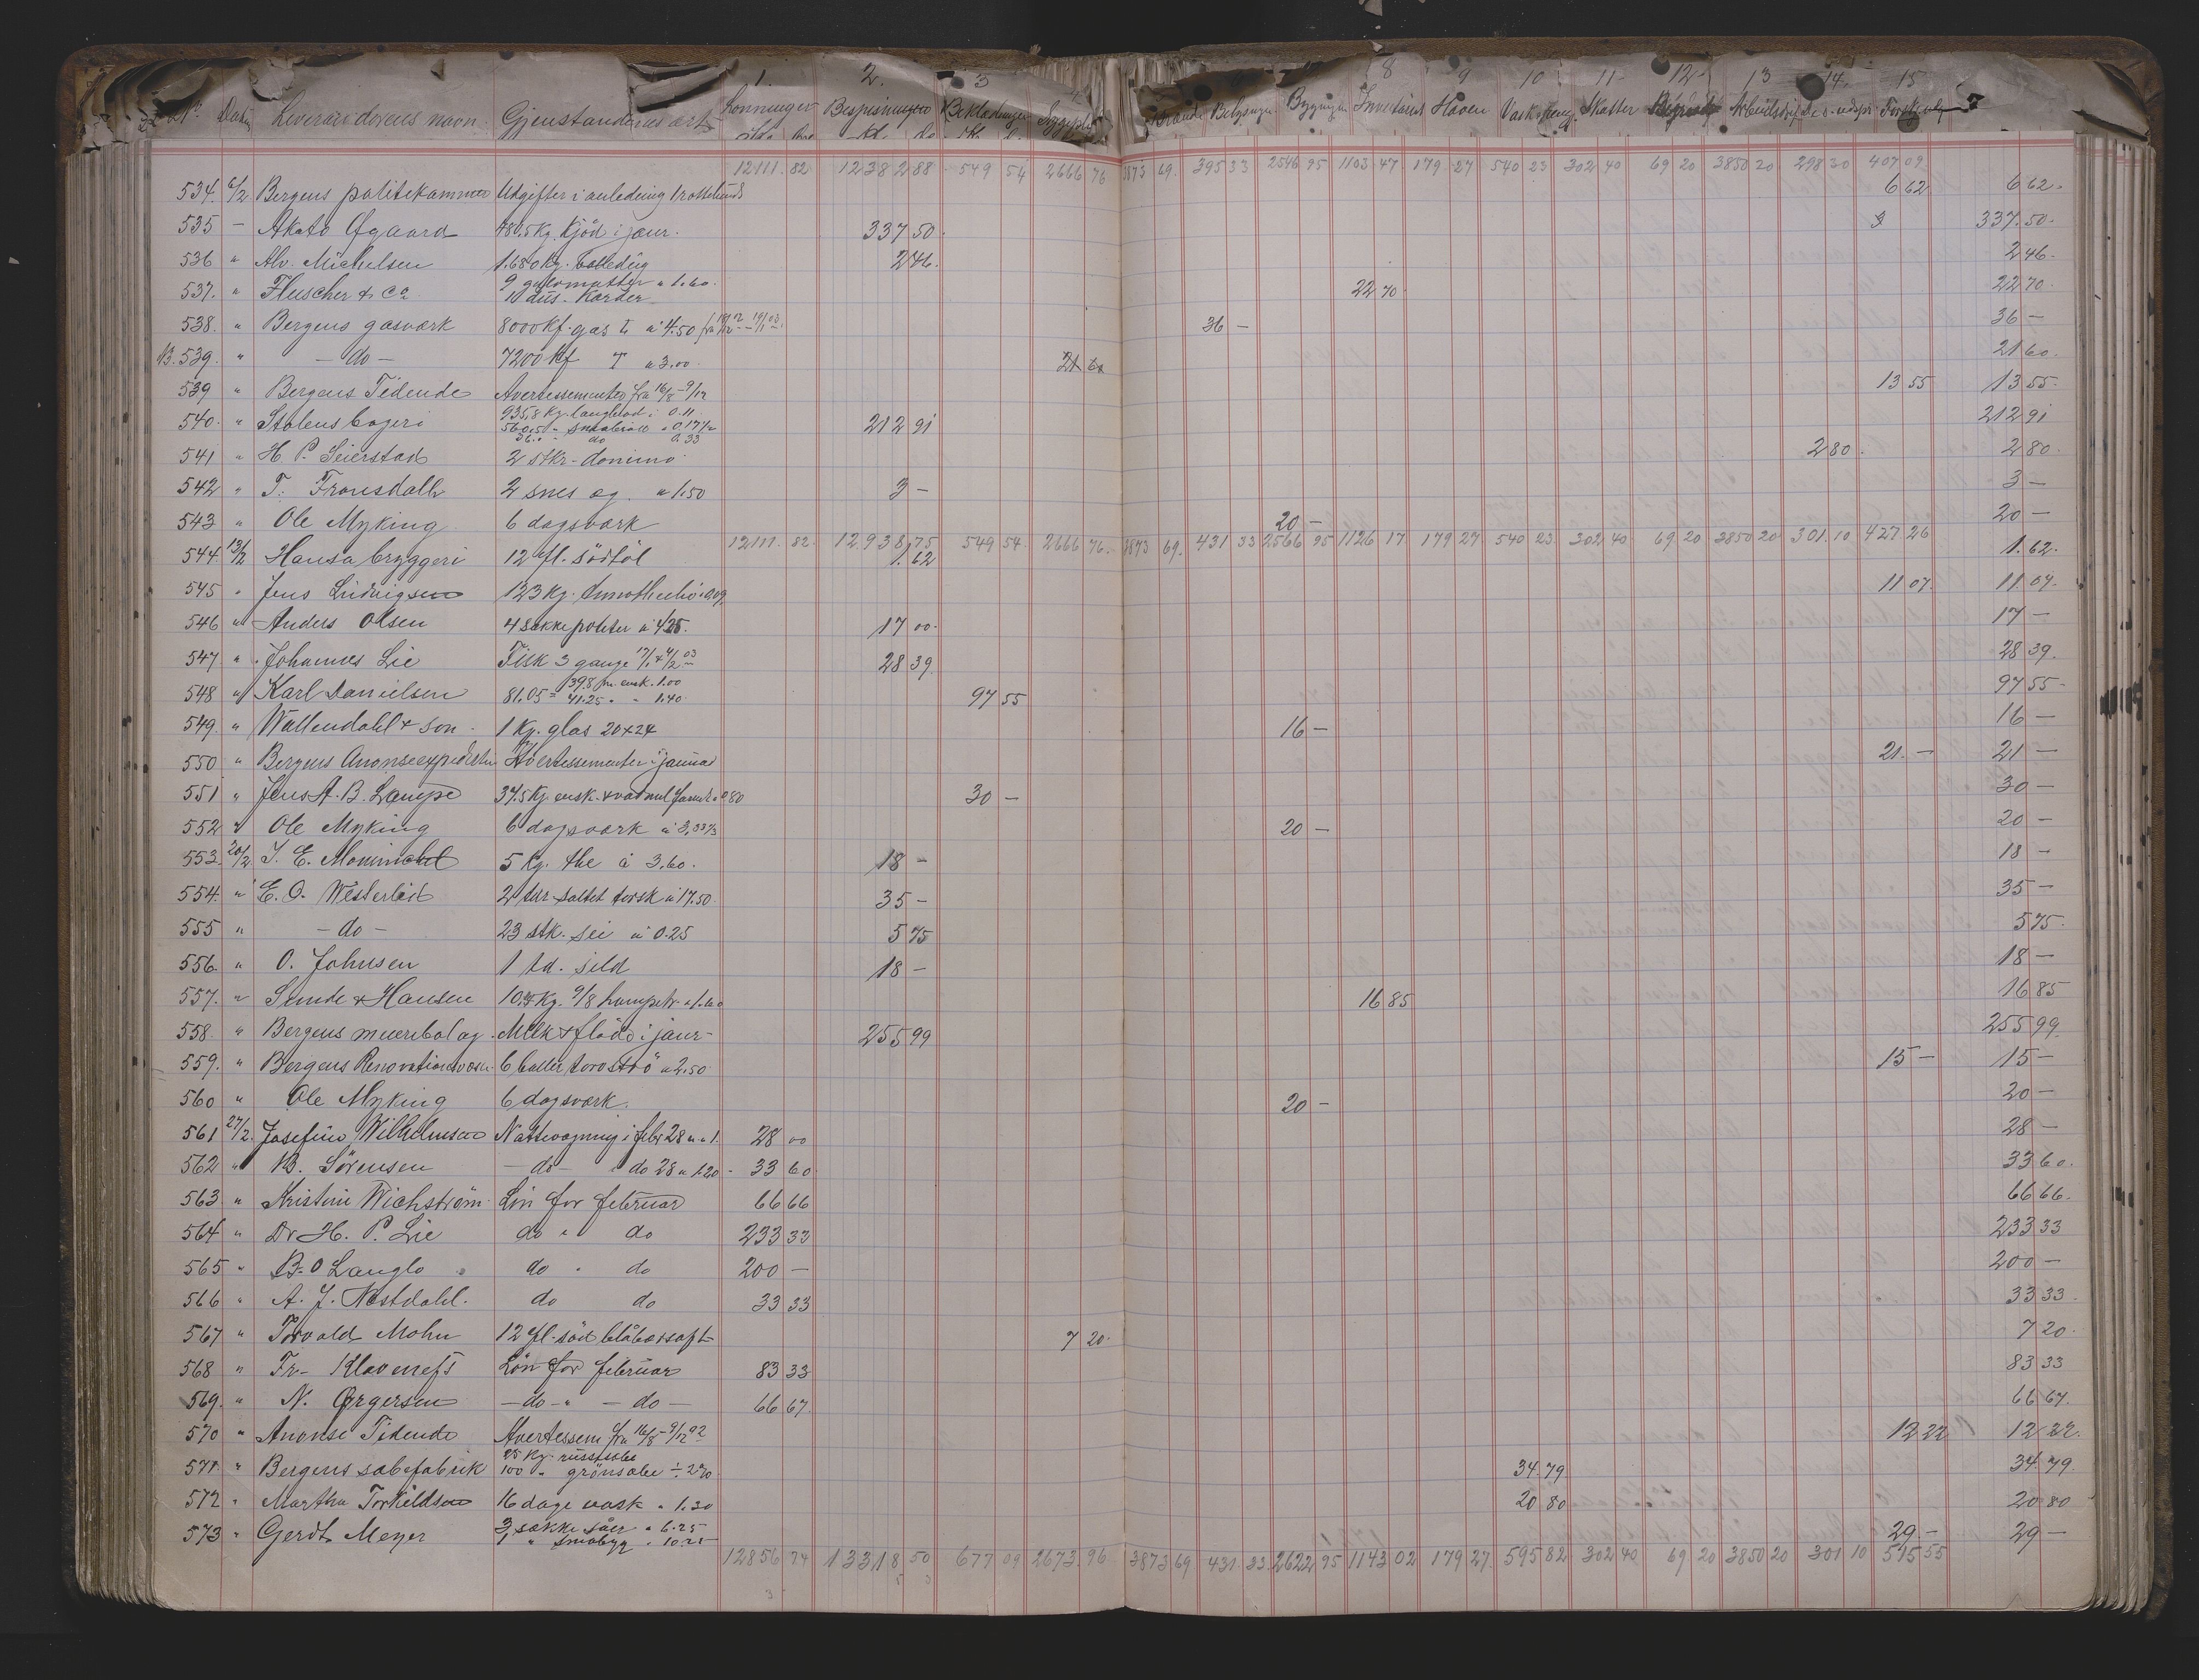 1. 2. 3 4 8 9 10 11 12 13 14. 15
No. Dato Leverandörens navn Gjenstandenes art Lönninger Bespisningen Beklædningen Sygepleie Brænde Belysningen Bygningen Inventariet Haven Vask & reng. Skatter Arbeidsdrift
Kr. Öre
12111.82 12382 88 549 54 2666 76 3873 69. 395 33 2546 95 1103 47 179 27 540 23 302 40 69 20 3850 20 298 30 407 09
534. 6/2 Bergens politikammer Utgifter i anledning 6 62 6 62.
535 — Øgaard 480,5 Kg. kjöd i janr. 337 50 337.50.
536 " Alv. Michelsen 1.680 Kg. 246. 246.
537. " Fluscher & Co 9 gulvmatter a 1.60. 10 dus. Karder 22 70 22 70.
538. " Bergens gasværk 8000 kf. gas à 4.50 36 — 36 —
B. 539. " — do — 7200 kf a 3.00. 21 60 21 60.
539 " Bergens Tidende Avertessementer fra 16/8 - 9/12 13 55 13 55.
540. " Stölens bageri 935,8 Kg. langbröd à 0.11. 560,5 " smaabröd à 0,17½ 36. " do 0.33 212 91 212 91
541 " H. P. Seierstad 2 stkr. domino 2 80. 2 80.
542 " T. Fronsdalh 2 snes æg. a 1.50 3 — 3 —
543 " Ole Myking 6 dagsværk 20 — 20 —
12111. 82. 12.938,75 549 54. 2666 76. 3873 69. 431 33 2566 95 1126 17 179 27 540 23 302 40 69 20 3850 20 301.10 427 26
544. 13/2 Hansa bryggeri 12 fl. södtöl 1.62 1.62.
545 " Jens Ludvigsen 123 Kg. timotheihö a 0.09 11 07. 11 07.
546 " Anders Olsen 4 sække poteter à 4.25. 17 00. 17 —
547 " Johannes Lie Fisk 3 gange 17/1 & 4/2 03 28 39. 28 39.
548 " Karl Danielsen 81.05 = 39.8 m. ensk. 1.00 41.25 " " 1.40. 97 55 97 55.
549. " Wallendahl & Søn. 1 Kg. glas 20 x 24 16 — 16 —
550 " Bergens Anonseexpedition Avertessementer i januar 21. — 21 —
551 " Jens A. B. Lampe 37.5 Kg. ensk. & vadmel farvet a 0.80 30 — 30 —
552 " Ole Myking 6 dagsværk à 3,33⅓ 20 — 20 —
553. 20/2 J. E. Mowinckel 5 Kg. the à 3.60. 18 — 18 —
554. " E. O. Westerlid 2 tdr saltet torsk à 17.50. 35 — 35 —
555 " — do — 23 stk. sei à 0.25 5 75 5 75.
556. " O. Johnsen 1 td. sild 18 — 18 —
557. " Sunde & Hansen 10.5 Kg. 9/8 hampetr. a 1.60 16 85 16 85
558. " Bergens meieribolag. Melk & flöde i janr. 255 99 255 99.
559. " Bergens Renovationsvæsen 6 baller torvströ a 2.50 15 — 15 —
560 " Ole Myking 6 dagsværk. 20 — 20 —
561 27/2. Josefine Wilhelmsen Nattevaagning i febr 28 n. a 1. 28 00 28 —
562 " B. Sørensen — do — do 28 a 1.20 33 60 33 60.
563 " Kristine Wichstrøm Lön for februar 66 66 66 66.
564 " Dr H. P. Lie do " do 233 33 233 33
565 " B. O Langlo do " do 200 — 200 —
566 " A. J. Nestdahl. do do 33 33 33 33.
567 " Torvald Mohn 12 fl. söd blåbærsaft 7 20. 7 20.
568 " Fr. Klavenefs Lön for februar 83 33 83 33
569. " N. Ørgersen — do — " — do — 66 67. 66 67.
570 " Anonse Tidende Avertessem fra 16/8 - 9/12 02 12 22 12 22.
571. " Bergens sæbefabrik 25 Kg. russesæbe 100 " grönsæbe ÷ 2% 34.79 34 79.
572 " Martha Torkildsen 16 dage vask a 1.30 20 80 20 80
573 " Gerdt Meyer 3 sække såer a 6.25 1 " småbyg a 10.25 29. — 29 —
12856 74 13318 50 677 09 2673 96 3873 69 431. 33. 2622 95 1143 02 179 27. 595 82 302 40 69 20 3850 20 301 10 515 55